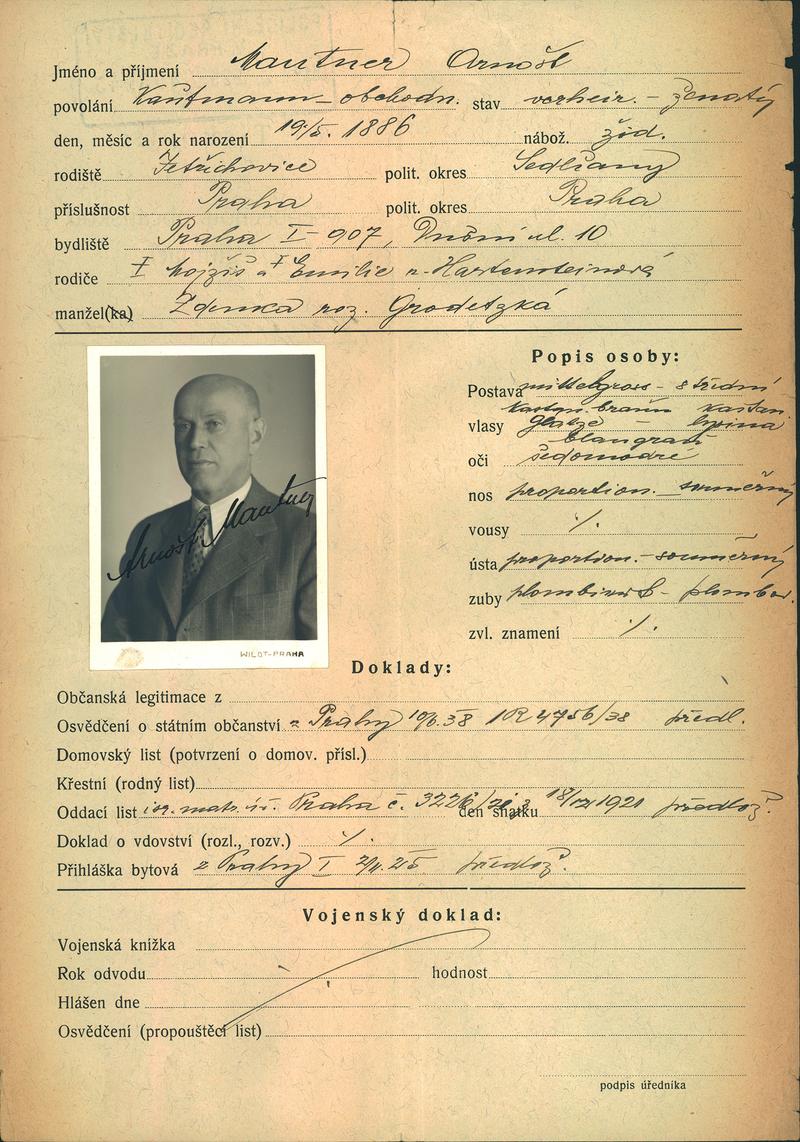 Jméno a příjmení Mautner Arnošt
povolání Kaufmann – obchodn. stav verheir. – ženatý
den, měsíc a rok narození 19./5. 1886 nábož. žid.
rodiště Jetřichovice polit. okres Sedlčany
příslušnost Praha polit. okres Praha
bydliště Praha I – 907, Dušní ul. 10
rodiče Mojžíš a Emilie r. Hartensteinová
manžel(ka) Zdenka roz. Grodetzká
Popis osoby:
Postava mittelgross – střední
kastan. braun kaštan.
vlasy Glatze – lysina
blaugrau
oči šedomodré
nos proportion. – souměrný
vousy ./.
ústa proportion. – souměrný
zuby plombiert – plombov.
zvl. znamení ./.
Arnošt Mautner
WILDT-PRAHA
Doklady:
Občanská legitimace z
Osvědčení o státním občanství z Prahy 10/6. 38 IR 4756/38 předl.
Domovský list (potvrzení o domov. přísl.)
Křestní (rodný list)
Oddací list isr. matr. Praha č. 3226 den sňatku 1921 předlož.
Doklad o vdovství (rozl., rozv.) ./.
Přihláška bytová z Prahy I 25 předlož.
Vojenský doklad:
Vojenská knížka
Rok odvodu hodnost
Hlášen dne
Osvědčení (propouštěcí list)
podpis úředníka